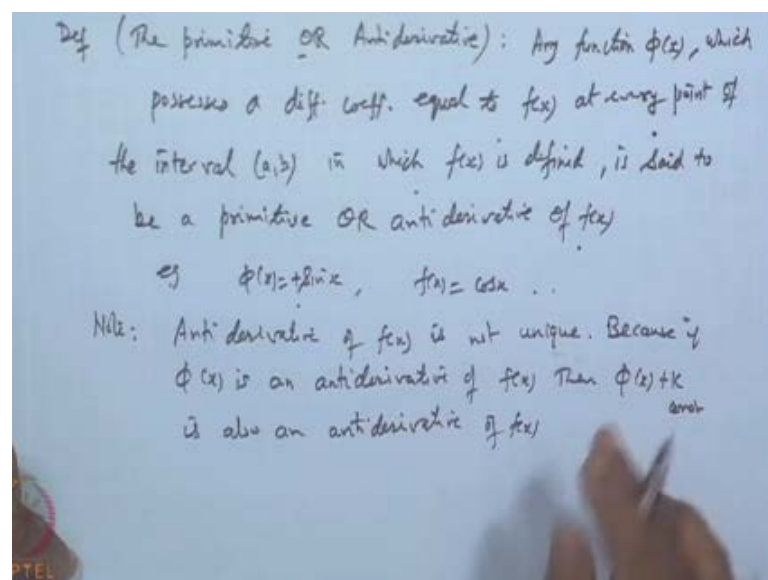 Def (The primitive OR Antiderivative): Any function ϕ(x), which
possesses a diff. coeff. equal to f(x) at every point of
the interval (a,b) in which f(x) is defined, is said to
be a primitive OR antiderivative of f(x)
eg ϕ(x)=+sin x, f(x)= cosx ..
Note: Antiderivative of f(x) is not unique. Because if
ϕ(x) is an antiderivative of f(x) Then ϕ(x)+K
const
is also an antiderivative of f(x)
PTEL